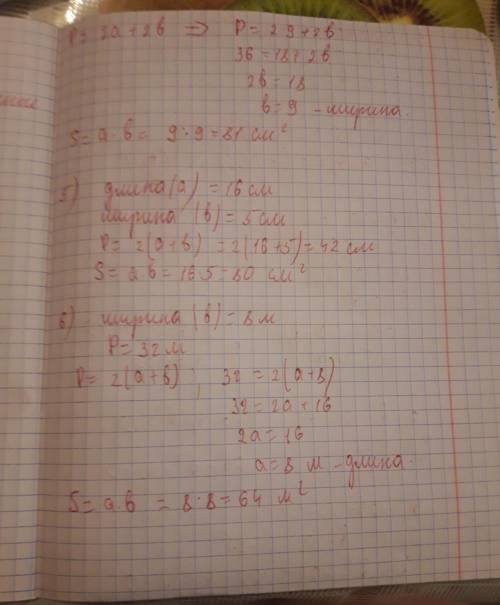 P= 2a+2b => P= 2 9+2b
36 = 18+2b
2b = 18
b = 9 - ширина.
S= a·b = 9·9=81 см²
5) длина(a) = 16 см
ширина (b) = 5 см
P= 2(a+b) = 2(16+5)=42 см
S= a·b = 16·5=80 см²
6) ширина (b) = 8 м
P= 32 м
P= 2(a+b) ; 32 = 2(a+8)
32 = 2a+16
2a = 16
a = 8 м - длина.
S= a·b = 8·8=64 м²